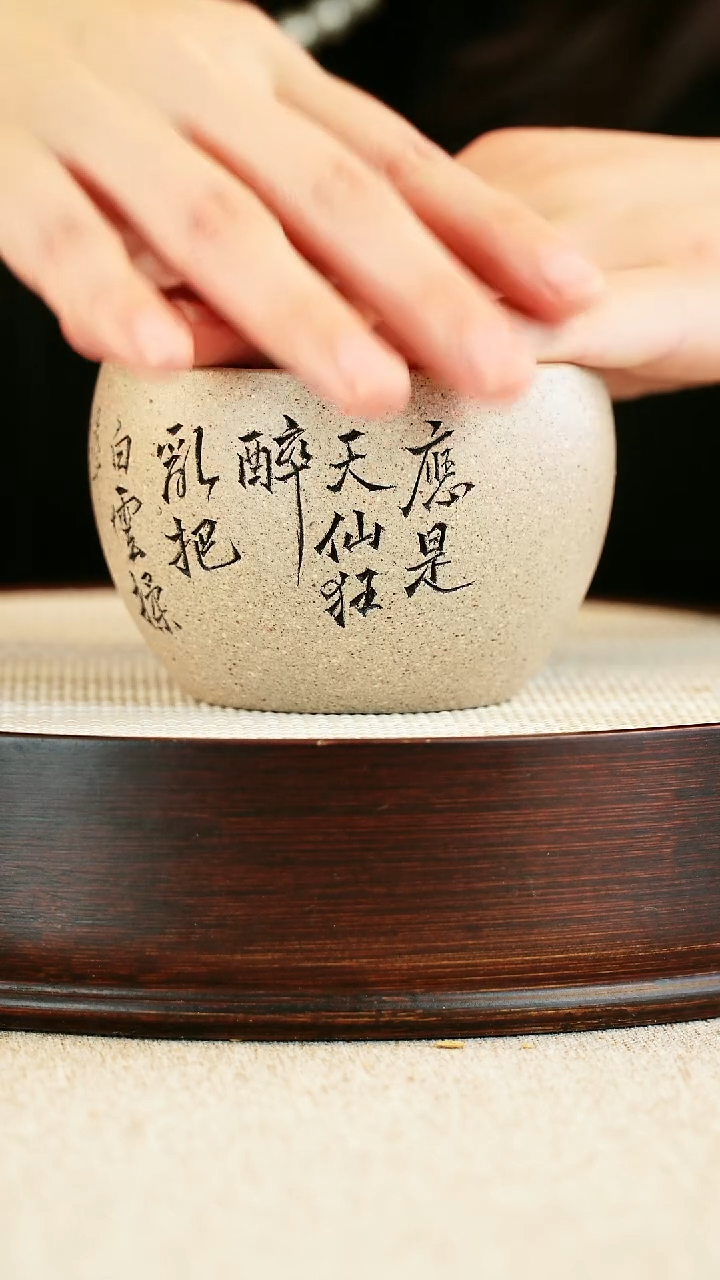 應是
天仙狂
醉
亂把
白雲揉